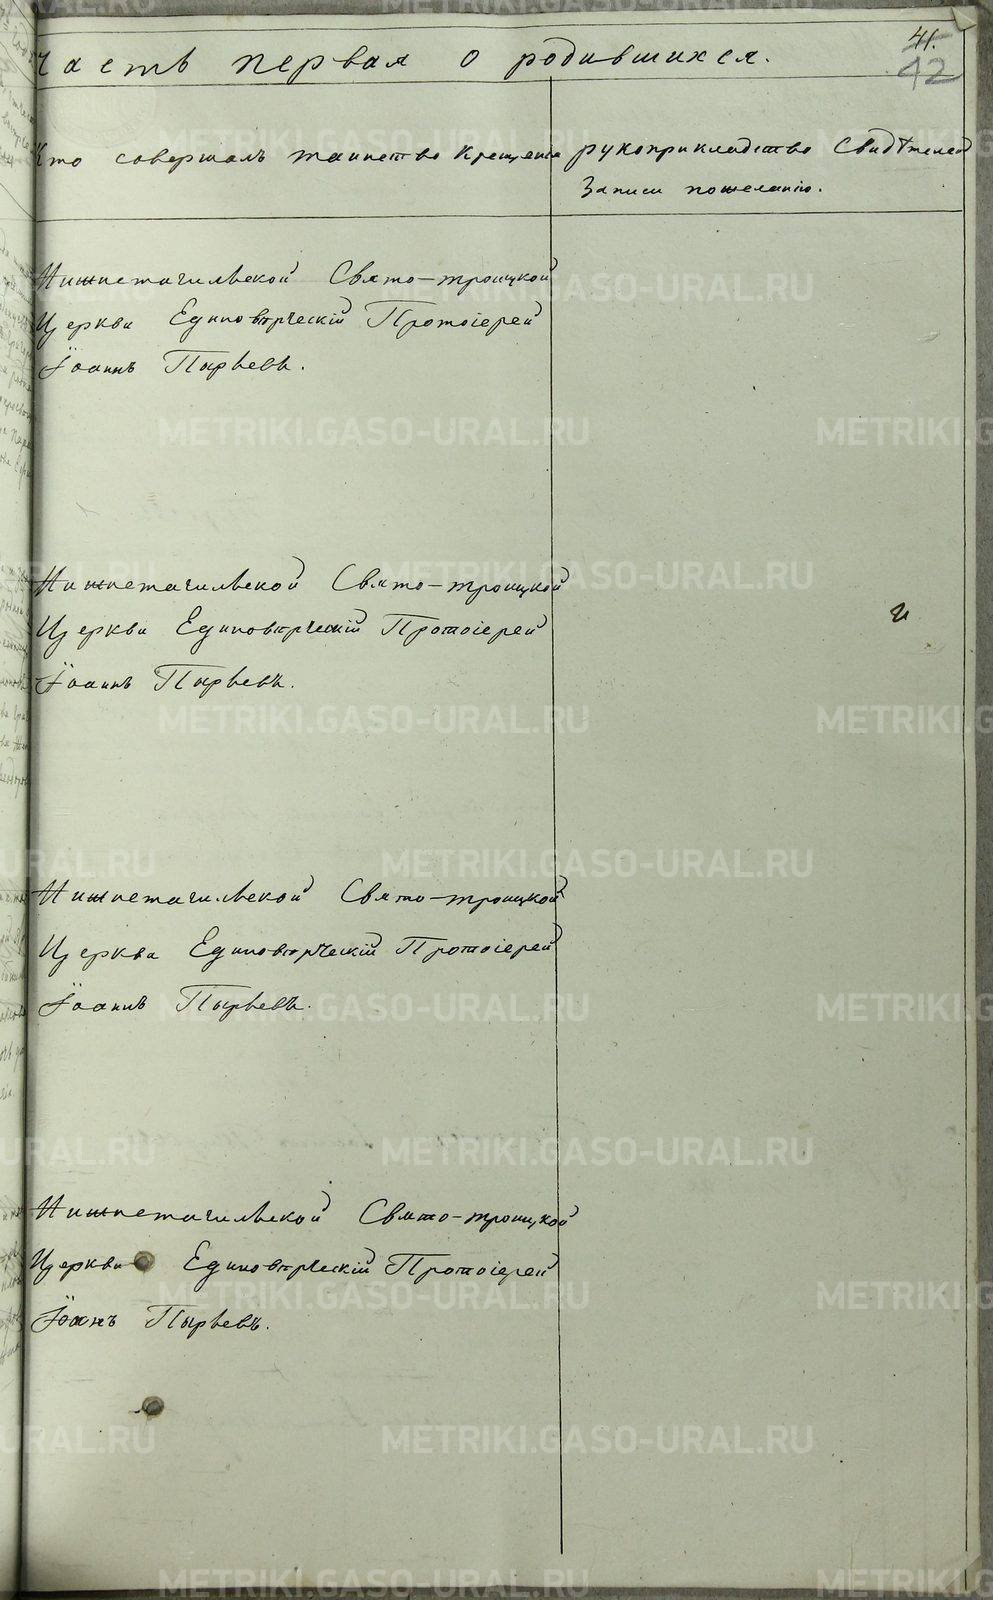 41.
42
Часть первая о родившихся.
Кто совершалъ таинство Крещенія
рукоприкладство Свидѣтелей
Записи пожеланію.
Нижнетагильской Свято-троицкой
Церкви Единовѣрческій Протоіерей
Іоаннъ Пырьевъ.
Нижнетагильской Свято-троицкой
Церкви Единовѣрческій Протоіерей
Іоаннъ Пырьевъ.
и
Нижнетагильской Свято-троицкой
Церкви Единовѣрческій Протоіерей
Іоаннъ Пырьевъ.
Нижнетагильской Свято-троицкой
Церкви Единовѣрческій Протоіерей
Іоанъ Пырьевъ.
METRIKI.GASO-URAL.RU